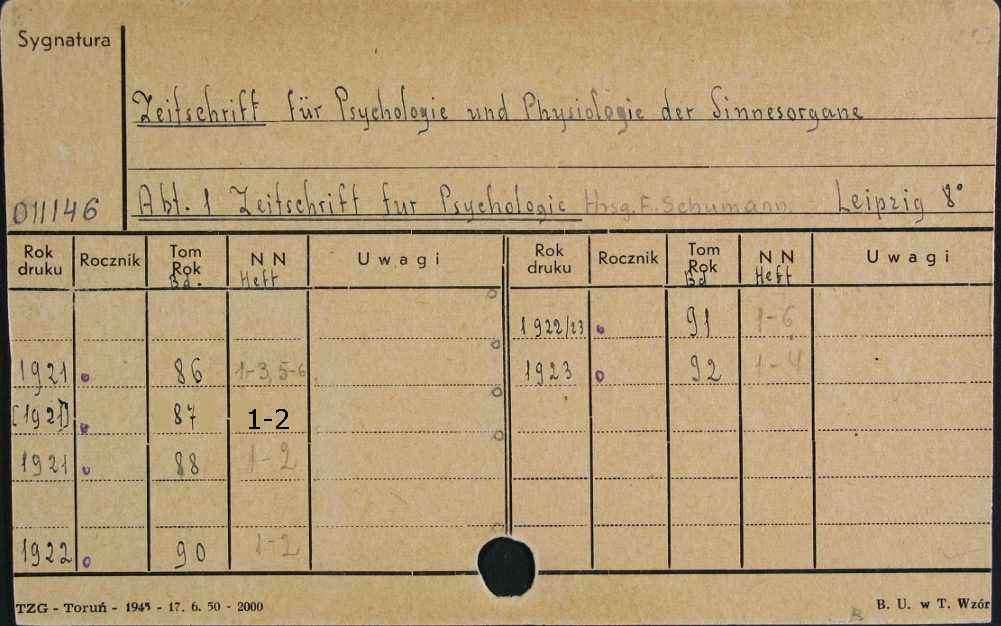 Sygnatura
Zeitschrift für Psychologie und Physiologie der Sinnesorgane
011146 Abt. 1 Zeitschrift fur Psychologie Hrsg. F. Schumann Leipzig 8°
Rok druku Rocznik Tom Rok Bd. NN Heft Uwagi Rok druku Rocznik Tom Rok Bd NN Heft Uwagi
1922/23 91 1-6
1921 86 1-3, 5-6 1923 92 1-4
[1921] 87 1-2
1921 88 1-2
1922 90 1-2
TZG - Toruń - 1945 - 17. 6. 50 - 2000 B. U. w T. Wzór